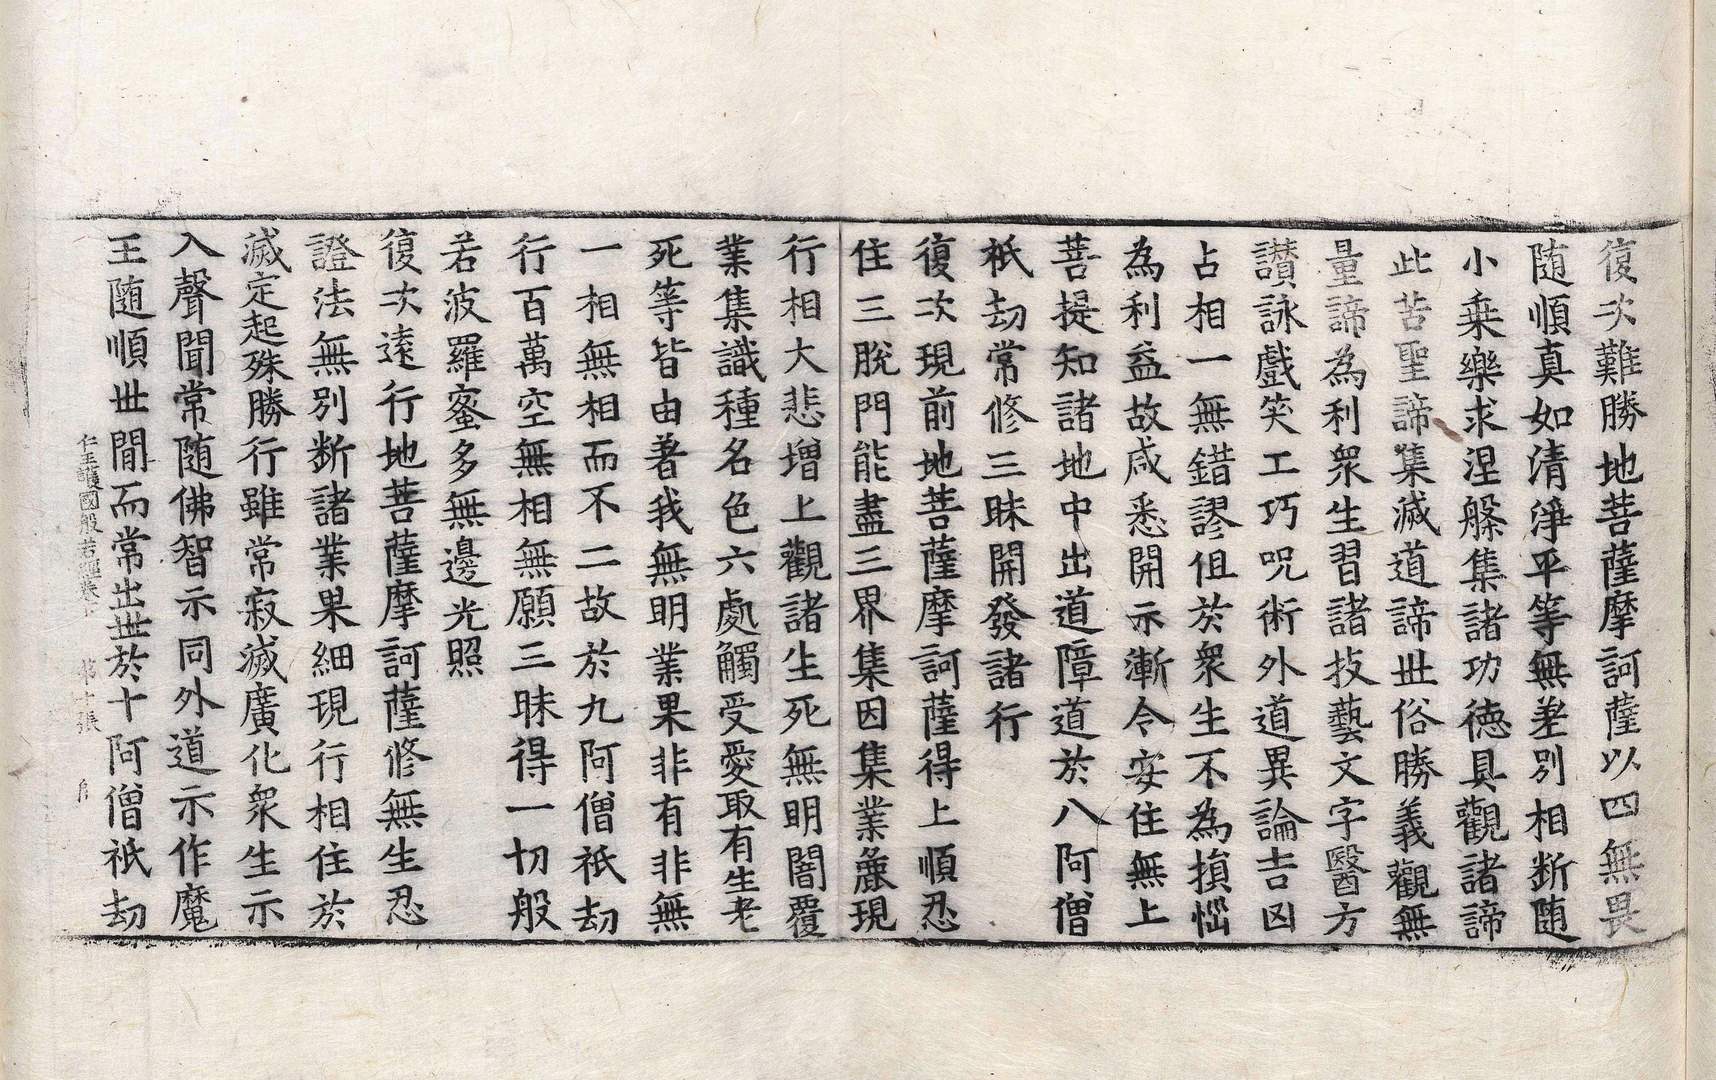 復次難勝地菩薩摩訶薩以四無畏
随順真如清淨平等無差別相断随
小乗樂求涅槃集諸功徳具觀諸諦
此苦聖諦集滅道諦世俗勝義觀無
量諦為利衆生習諸技藝文字醫方
讃詠戲笑工巧呪術外道異論吉凶
占相一無錯謬但於衆生不為損惱
為利益故咸悉開示漸令安住無上
菩提知諸地中出道障道於八阿僧
祇劫常修三昧開發諸行
復次現前地菩薩摩訶薩得上順忍
住三脫門能盡三界集因集業麁現
行相大悲增上觀諸生死無明闇覆
業集識種名色六處觸受愛取有生老
死等皆由著我無明業果非有非無
一相無相而不二故於九阿僧祇劫
行百萬空無相無願三昧得一切般
若波羅蜜多無邊光照
復次遠行地菩薩摩訶薩修無生忍
證法無別断諸業果細現行相住於
滅定起殊勝行雖常寂滅廣化衆生示
入聲聞常随佛智示同外道示作魔
王随順世間而常出世於十阿僧祇劫
仁王護國般若經卷 第十張